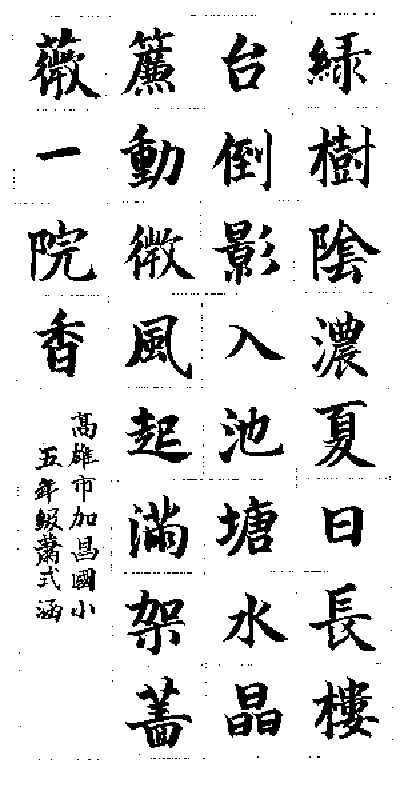 綠樹陰濃夏日長樓
台倒影入池塘水晶
簾動微風起滿架薔
薇一院香
高雄市加昌國小
五年級蕭式涵